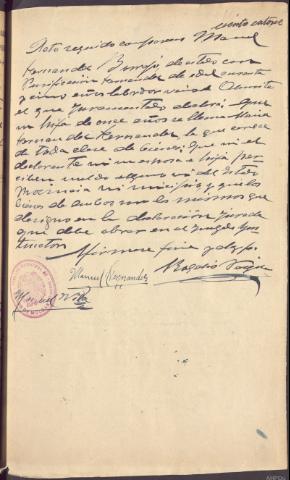 ciento catorce
Acto seguido comparece Manuel
Hernandez Borrajo, casado con
Purificación Hernandez de edad cuarenta
y cinco años labrador vecino de
el que Juramentado declara: Que
un hija de once años se llama Maria
Hernandez Hernandez, la que carece
de toda clase de bienes, Que ni el
declarante ni su esposa e hija per
ciben sueldo alguno ni del Estado
Provincia ni municipio y que los
bienes de ambos son los mismos que
designo en la declaración Jurada
que debe obrar en el Juzgado Ins
tructor.
Afirmase firma y
Manuel Hernandez
Rogelio